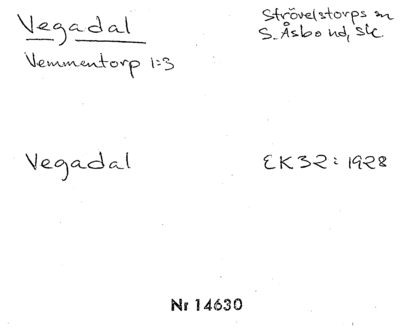 Vegadal
Strövelstorps sn
S. Åsbo hd, Sk.
Vemmentorp 1:3
Vegadal
EK32: 1928
Nr 14630